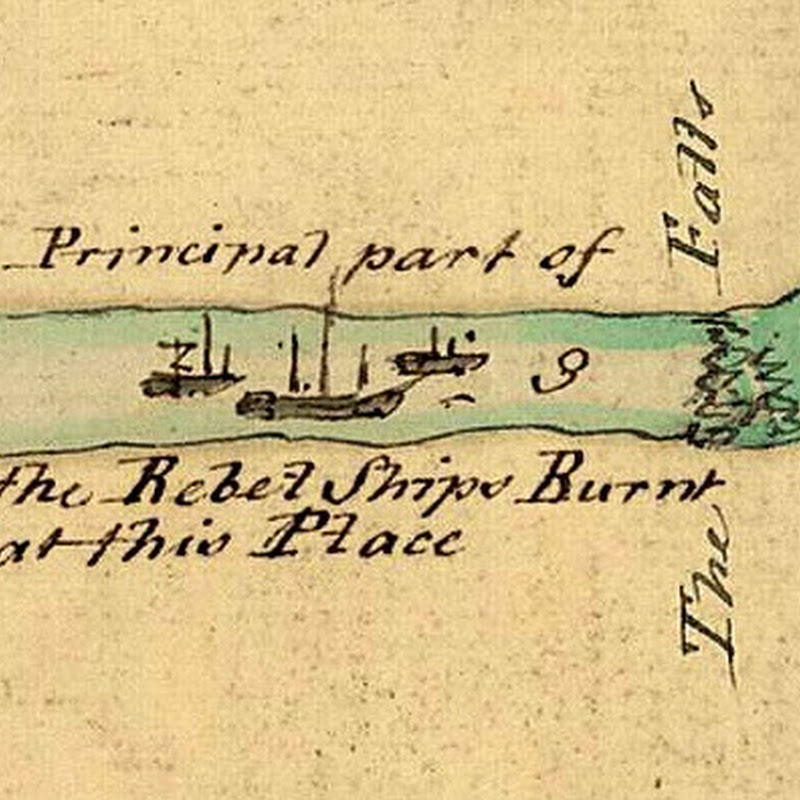 Principal part of
9
the Rebel Ships Burnt
at this Place
The Falls